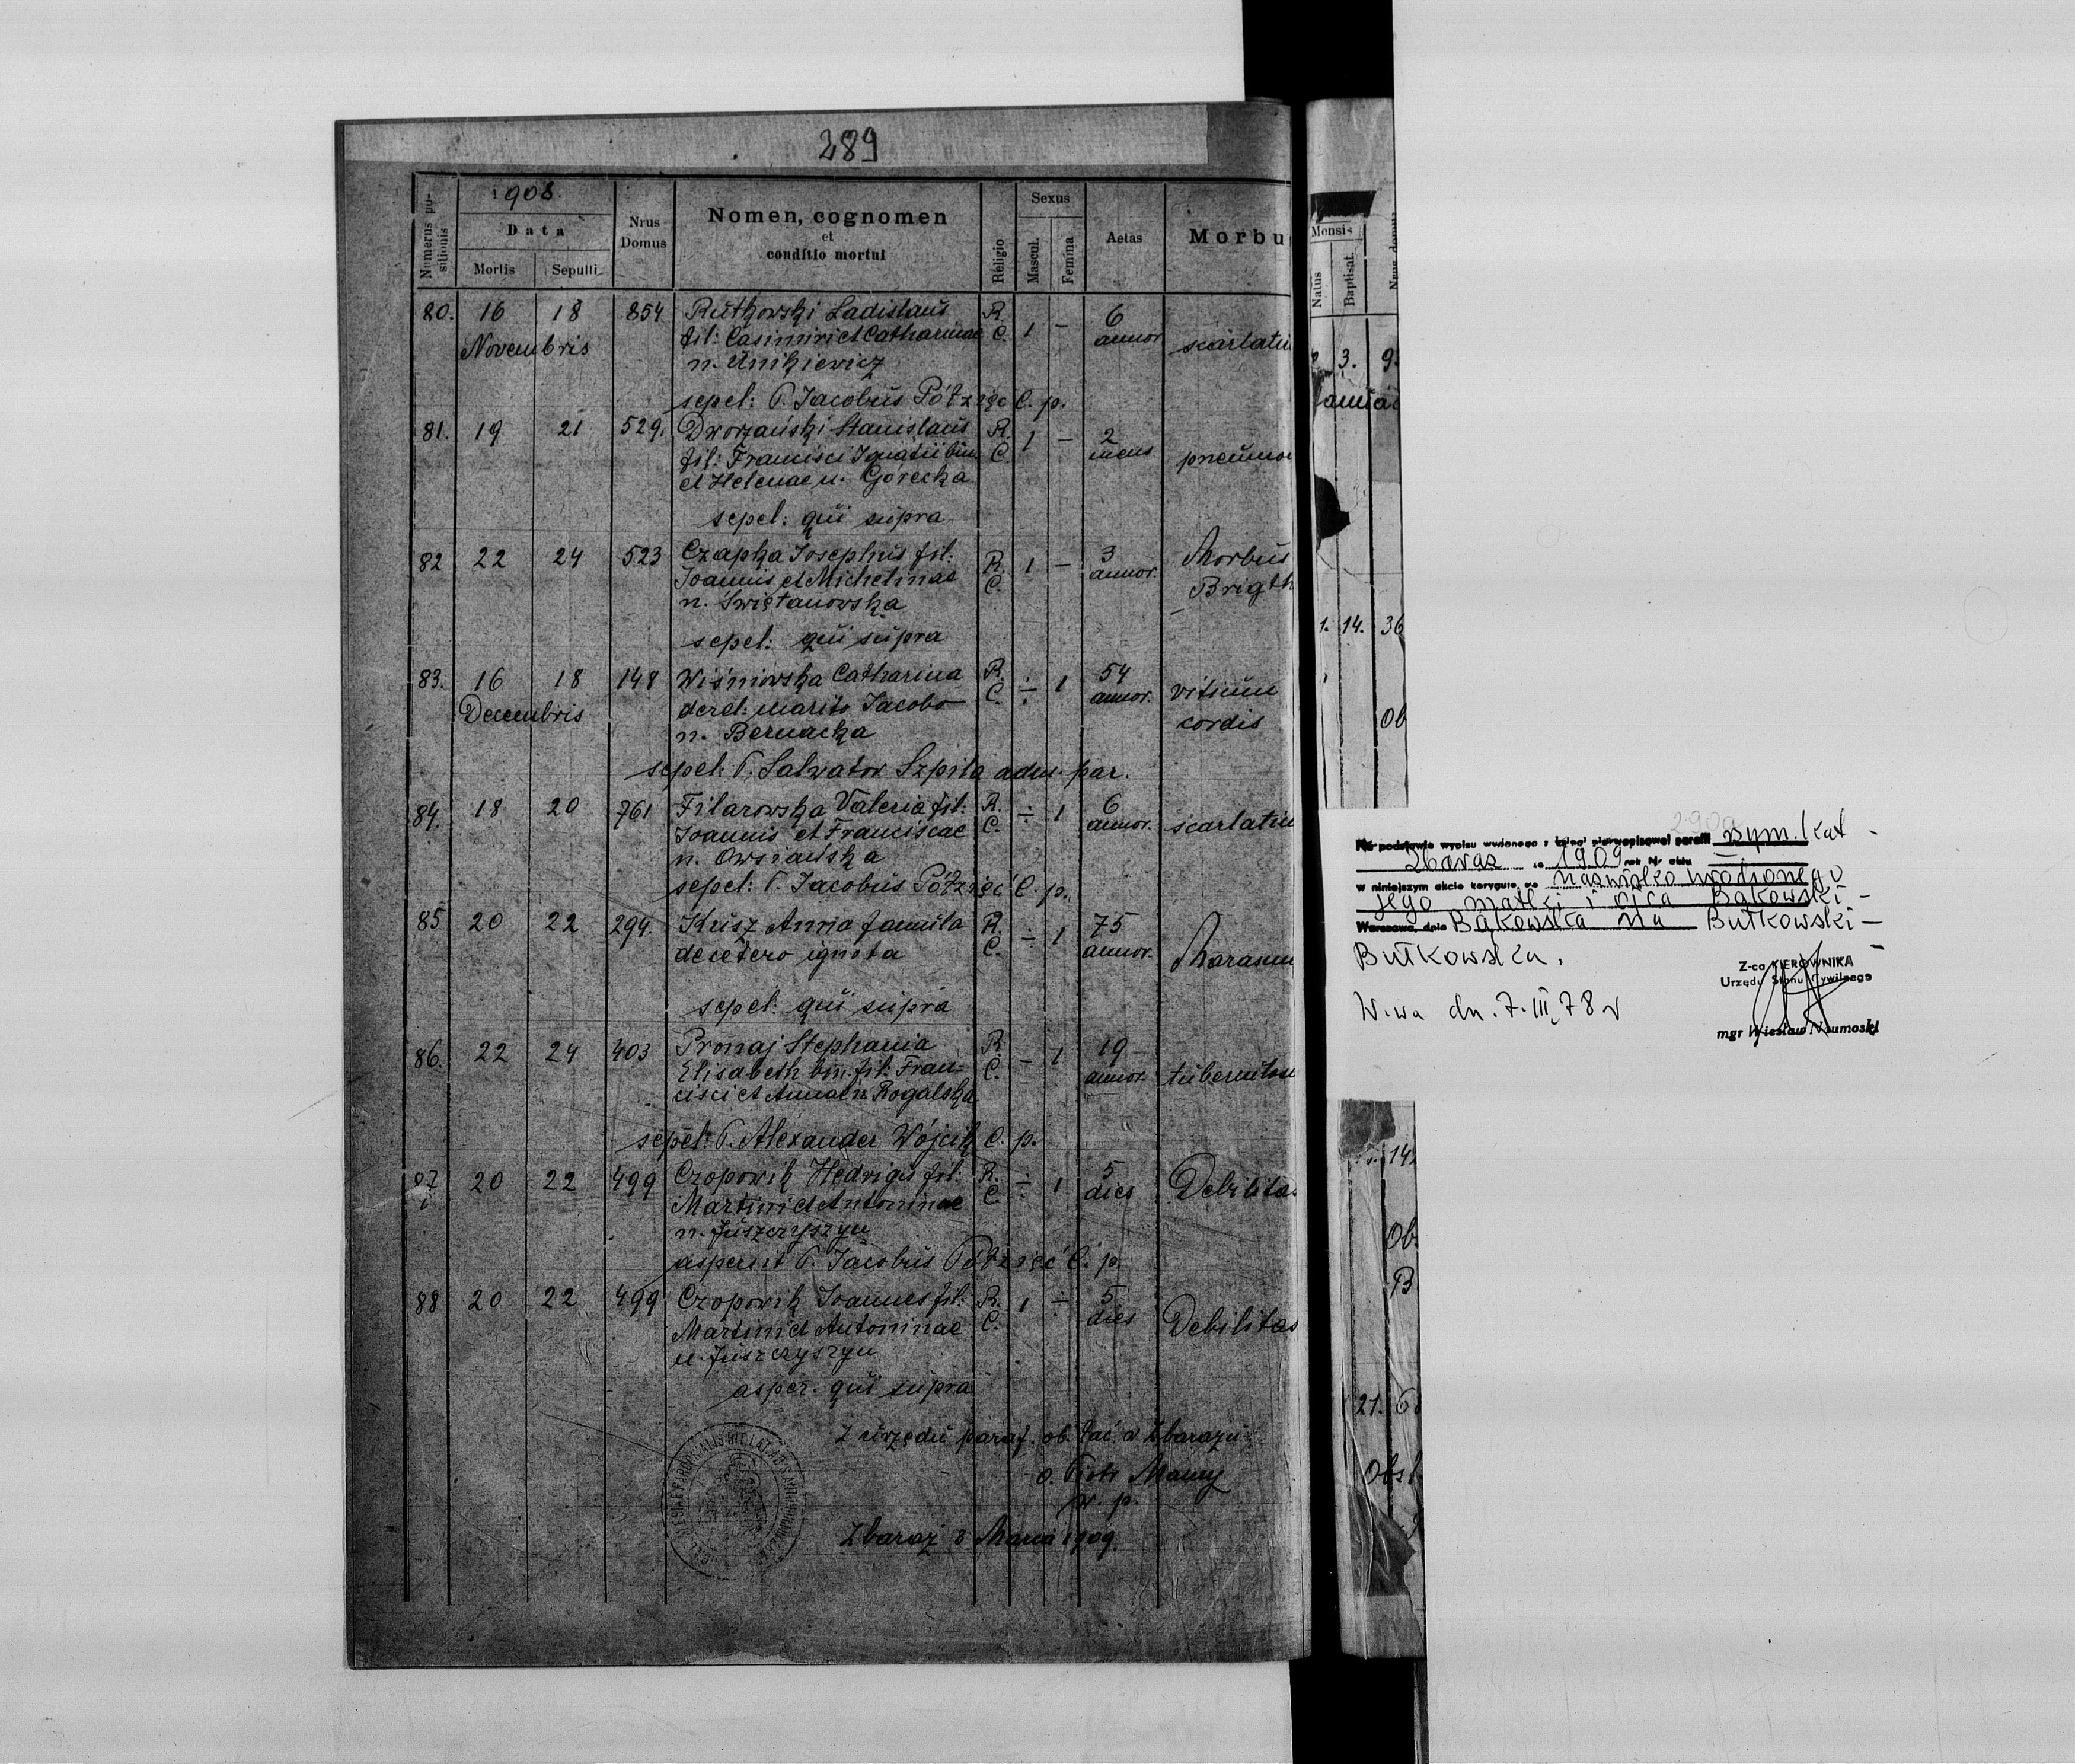 289
1908.
Numerus positionis
Data
Mortis
Sepulti
Nrus Domus
Nomen, cognomen
et
conditio mortui
Religio
Sexus
Mascul.
Femina
Aetas
Morbu
80. 16 18 854 Rutkowski Ladislaus R. 1 – 6
Novembris fil: Casimiri et Catharinae C. annor scarlatin
n. Unikiewicz
sepel: P. Jacobus Półzięć C. p.
81. 19 21 529. Dworzański Stanislaus R. 1 – 2
fil: Francisci Ignatii bin C. mens pneumon
et Helenae n. Górecka
sepel: qui supra
82 22 24 523 Czapka Josephus fil: R. 1 – 3 Morbus
Joannis et Michelinae C. annor. Brigth
n. Świętanowska
sepel: qui supra
83. 16 18 148 Wiśniowska Catharina R. ÷ 1 54 vitium
Decembris derel: marito Jacobo C. annor. cordis
n. Bernacka
sepel: P. Salvator Szpila adm. par.
84. 18 20 761 Filarowska Valeria fil: R. ÷ 1 6
Joannis et Franciscae C. annor. scarlatin
n. Owsiańska
sepel: P. Jacobus Półzięć C. p.
85 20 22 294. Kusz Anna famula R. ÷ 1 75
de cetero ignota C. annor. Marasm
sepel: qui supra
86. 22 24 403 Pronaj Stephania R. – 1 19
Elisabeth bin. fil: Fran= C. annor. tuberculos
cisci et Annae n. Rogalska
sepel: P. Alexander Wójcik C. p.
87 20 22 499 Czopowik Hedvigis fil: R. ÷ 1 5
Martini et Antoninae C. dies Debilitas
n. Juszczyszyn
asperit P. Jacobus Półzięć C. p.
88 20 22 499 Czopowik Joannes fil: R. 1 ÷ 5
Martini et Antoninae C. dies Debilitas
n. Juszczyszyn
asper. qui supra
Z urzędu paraf. ob. łać. w Zbarażu
o. Piotr
w. p.
Zbaraż 8 Marca 1909.
Mensis
Natus
Baptisat.
3. 9
1. 14. 36
Ob
14
Ob.
B
21. 6
Obst
290a
Na podstawie wypisu wydanego z księgi pierwopisowej parafii rzym. kat -
Zbaraż za 1909 rok Nr aktu
w niniejszym akcie koryguję się nazwisko urodzonego
jego matki i ojca Bąkowski -
Warszawa, dnia Bąkowska na Butkowski -
Butkowska.
W-wa dn. 7.III.78 r
Z-ca KIEROWNIKA
Urzędu Stanu Cywilnego
mgr Wiesław Naumoski